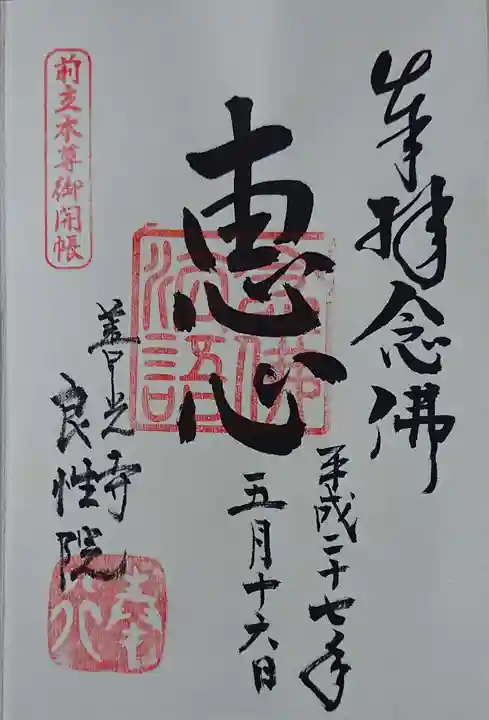 奉拝念佛
恵心
念佛
法語
平成二十七年
五月十六日
前立本尊御開帳
善光寺
良性院